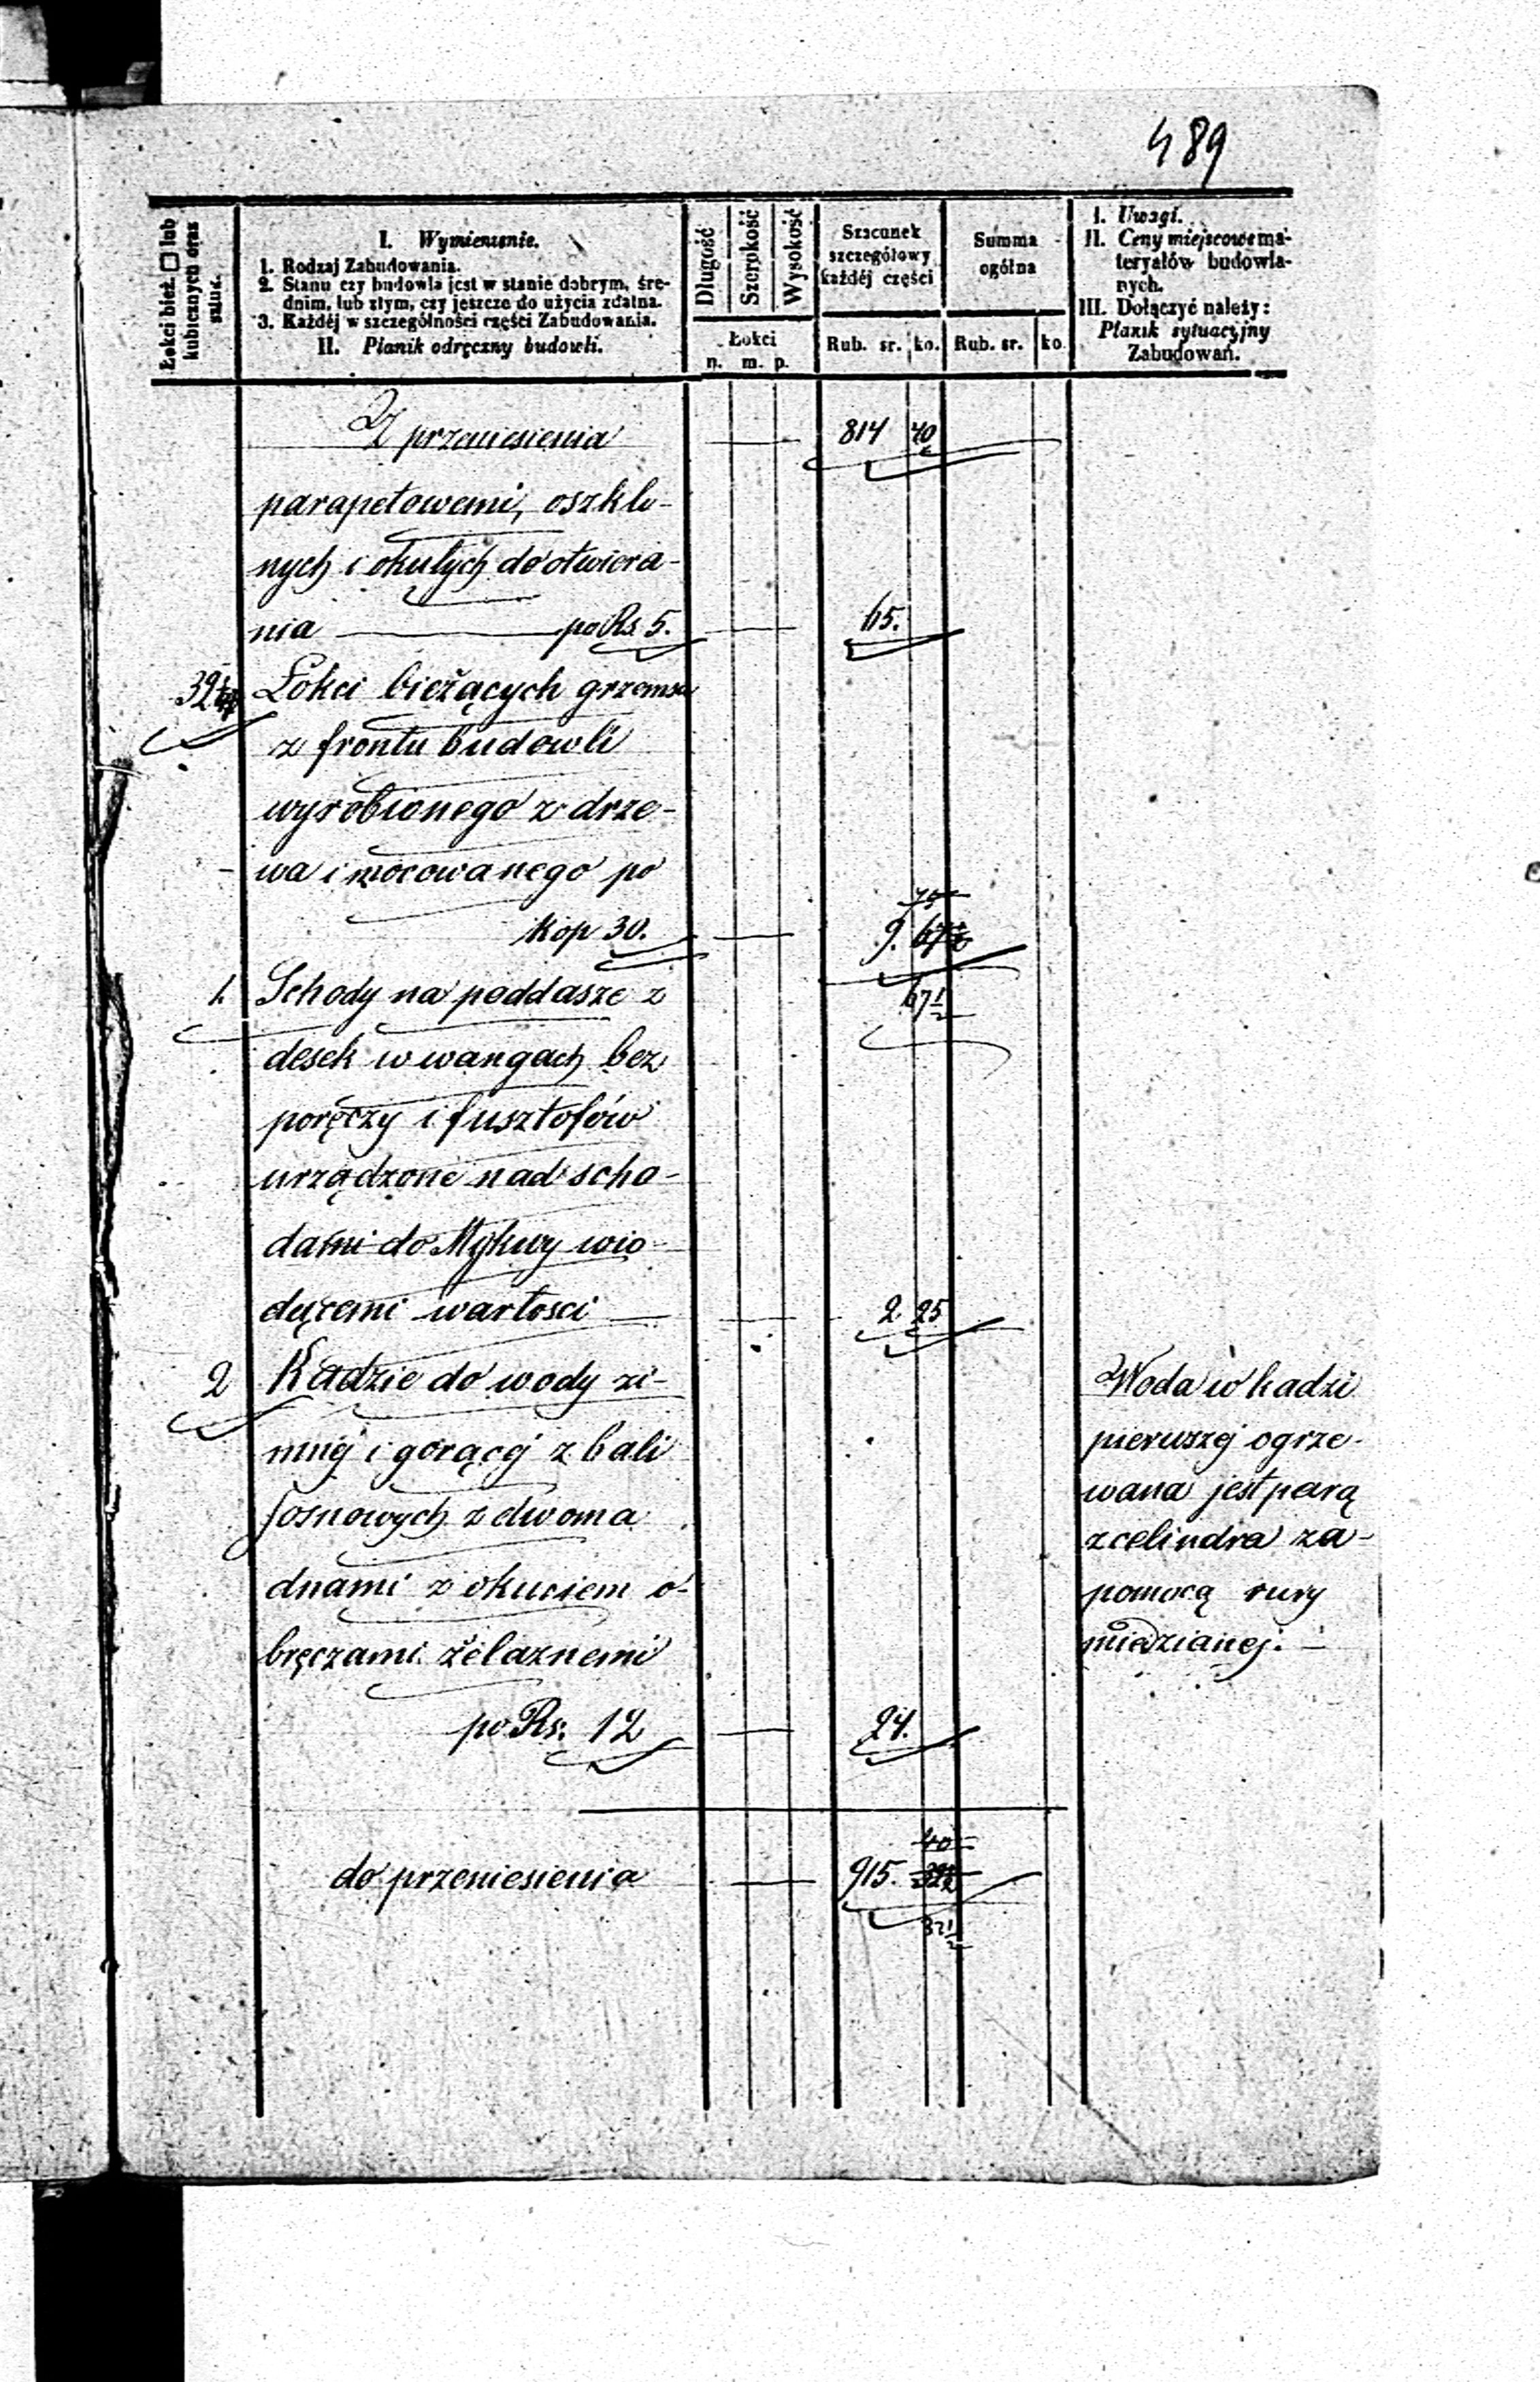 489
Łokci bież. □ lub
kubicznych oraz
sztuk.
I. Wymienienie.
1. Rodzaj Zabudowania.
2. Stanu czy budowla jest w stanie dobrym, śre-
dnim, lub złym, czy jeszcze do użycia zdatna.
3. Każdéj w szczególności części Zabudowania.
II. Planik odręczny budowli.
Długość
Szerokość
Wysokość
Łokci
n. m. p.
Szacunek
szczegółowy
każdéj części
Rub. sr. ko.
Summa
ogólna
Rub. sr. ko
I. Uwagi.
II. Ceny miejscowe ma-
teryałów budowla-
nych.
III. Dołączyć należy:
Planik sytuacyjny
Zabudowań.
Z przeniesienia 814 40
parapetowemi, oszklo-
nych i okutych do otwiera-
nia po Rs 5. 65.
32 Łokci bieżących grzemsu
z frontu budowli
wyrobionego z drze-
wa i mocowanego po
75
kop 30. 9. 67 1/2
67 1/2
1. Schody na poddasze z
desek w wangach bez
poręczy i fusztofów
urządzone nad scho-
dami do Mykwy wio-
dącemi wartosci 2 25
2 Kadzie do wody zi-
mnéj i gorącéj z bali
sosnowych z dwoma
dnami z okuciem o-
bręczami żelaznemi
po Rs. 12 24.
Woda w kadzi
pierwszéj ogrze-
wana jest parą
z celindra za-
pomocą rury
miedzianej.
40
do przeniesienia 915. 32 1/2
32 1/2